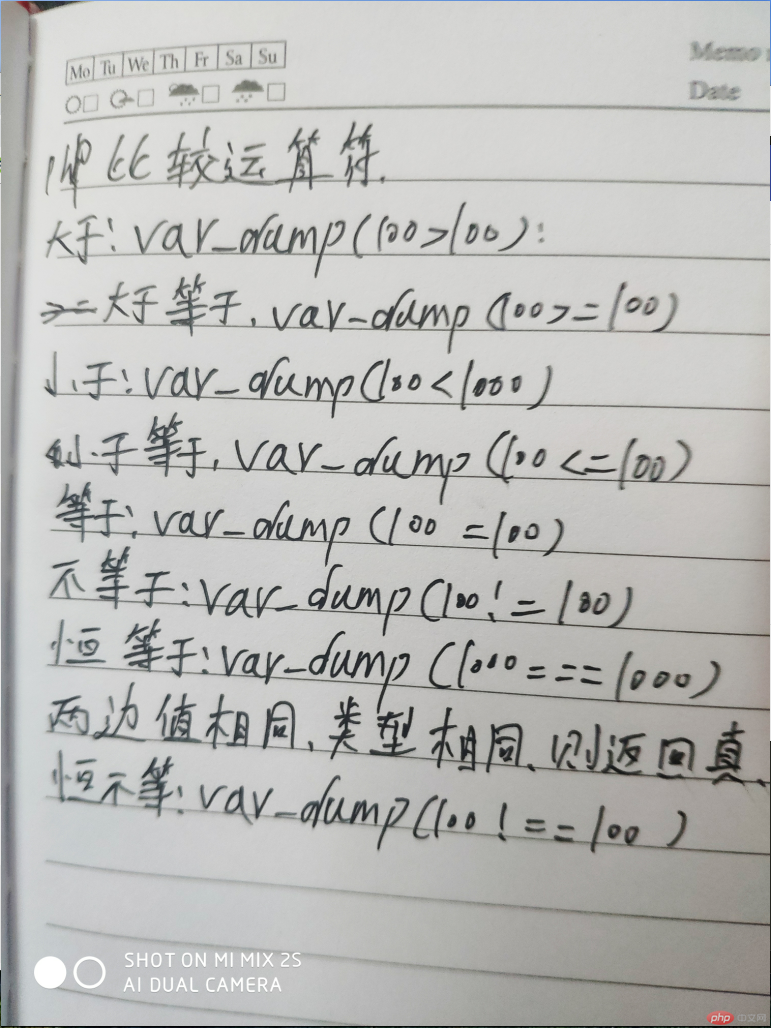 Mo Tu We Th Fr Sa Su
Memo
Date
比较运算符.
大于: var_dump(100>100):
>= 大于等于. var_dump(100>=100)
小于: var_dump(100<1000)
小于等于, var_dump(100<=100)
等于: var_dump(100 =100)
不等于: var_dump(100!=100)
恒等于: var_dump(1000===1000)
两边值相同、类型相同、则返回真、
恒不等: var_dump(100!==100)
SHOT ON MI MIX 2S
AI DUAL CAMERA
php 中文网